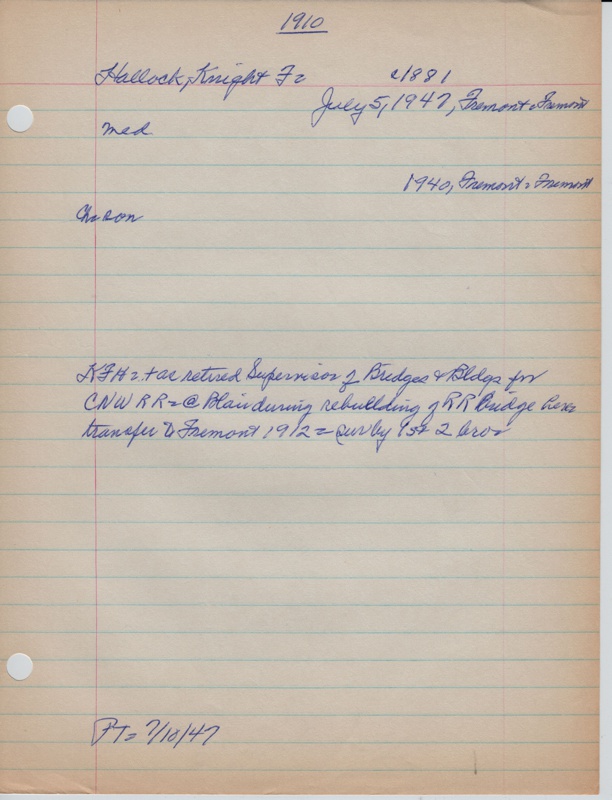 1910
Hallock, Knight F= c1881
July 5, 1947, Fremont= Fremont
med
1940, Fremont= Fremont
Ch= son
KFH= + as retired Supervisor of Bridges & Bldgs for
CNW RR= @ Blair during rebuilding of RR Bridge here=
transfer to Fremont 1912= sur by 1 s+ 2 bros
PT= 7/10/47